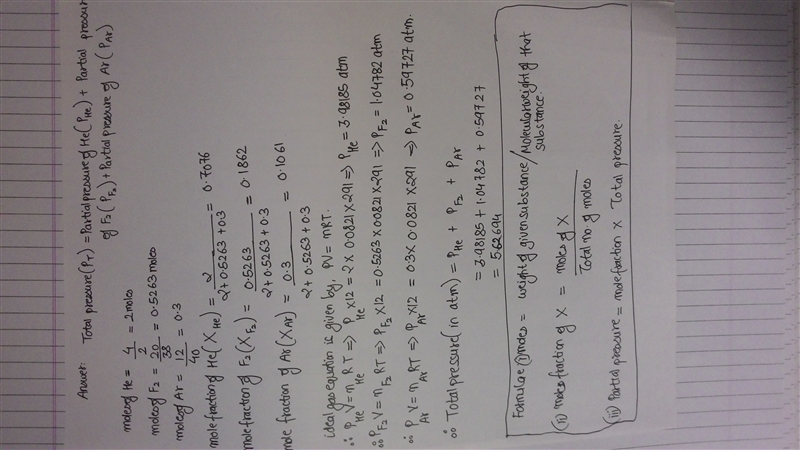 Answer: Total pressure (PT) = Partial pressure of He (PHe) + Partial pressure
of F2 (PF2) + Partial pressure of Ar (PAr)
moles of He = 4/2 = 2 moles
moles of F2 = 20/38 = 0.5263 moles
moles of Ar = 12/40 = 0.3
mole fraction of He (XHe) = 2/2+0.5263+0.3 = 0.7076
mole fraction of F2 (XF2) = 0.5263/2+0.5263+0.3 = 0.1862
mole fraction of Ar (XAr) = 0.3/2+0.5263+0.3 = 0.1061
ideal gas equation is given by, PV = nRT.
∴ PHe V = nHe RT ⇒ PHe X12 = 2 X 0.0821 X 291 ⇒ PHe = 3.98185 atm
∴ PF2 V = nF2 RT ⇒ PF2 X12 = 0.5263 X 0.0821 X 291 ⇒ PF2 = 1.04782 atm
∴ PAr V = nAr RT ⇒ PAr X12 = 0.3 X 0.0821 X 291 ⇒ PAr = 0.59727 atm.
∴ Total pressure (in atm) = PHe + PF2 + PAr
= 3.98185 + 1.04782 + 0.59727
= 5.62694
Formulae (i) moles = weight of given substance / Molecular weight of that
substance.
(ii) moles fraction of X = moles of X / Total no of moles
(iii) Partial pressure = mole fraction X Total pressure.